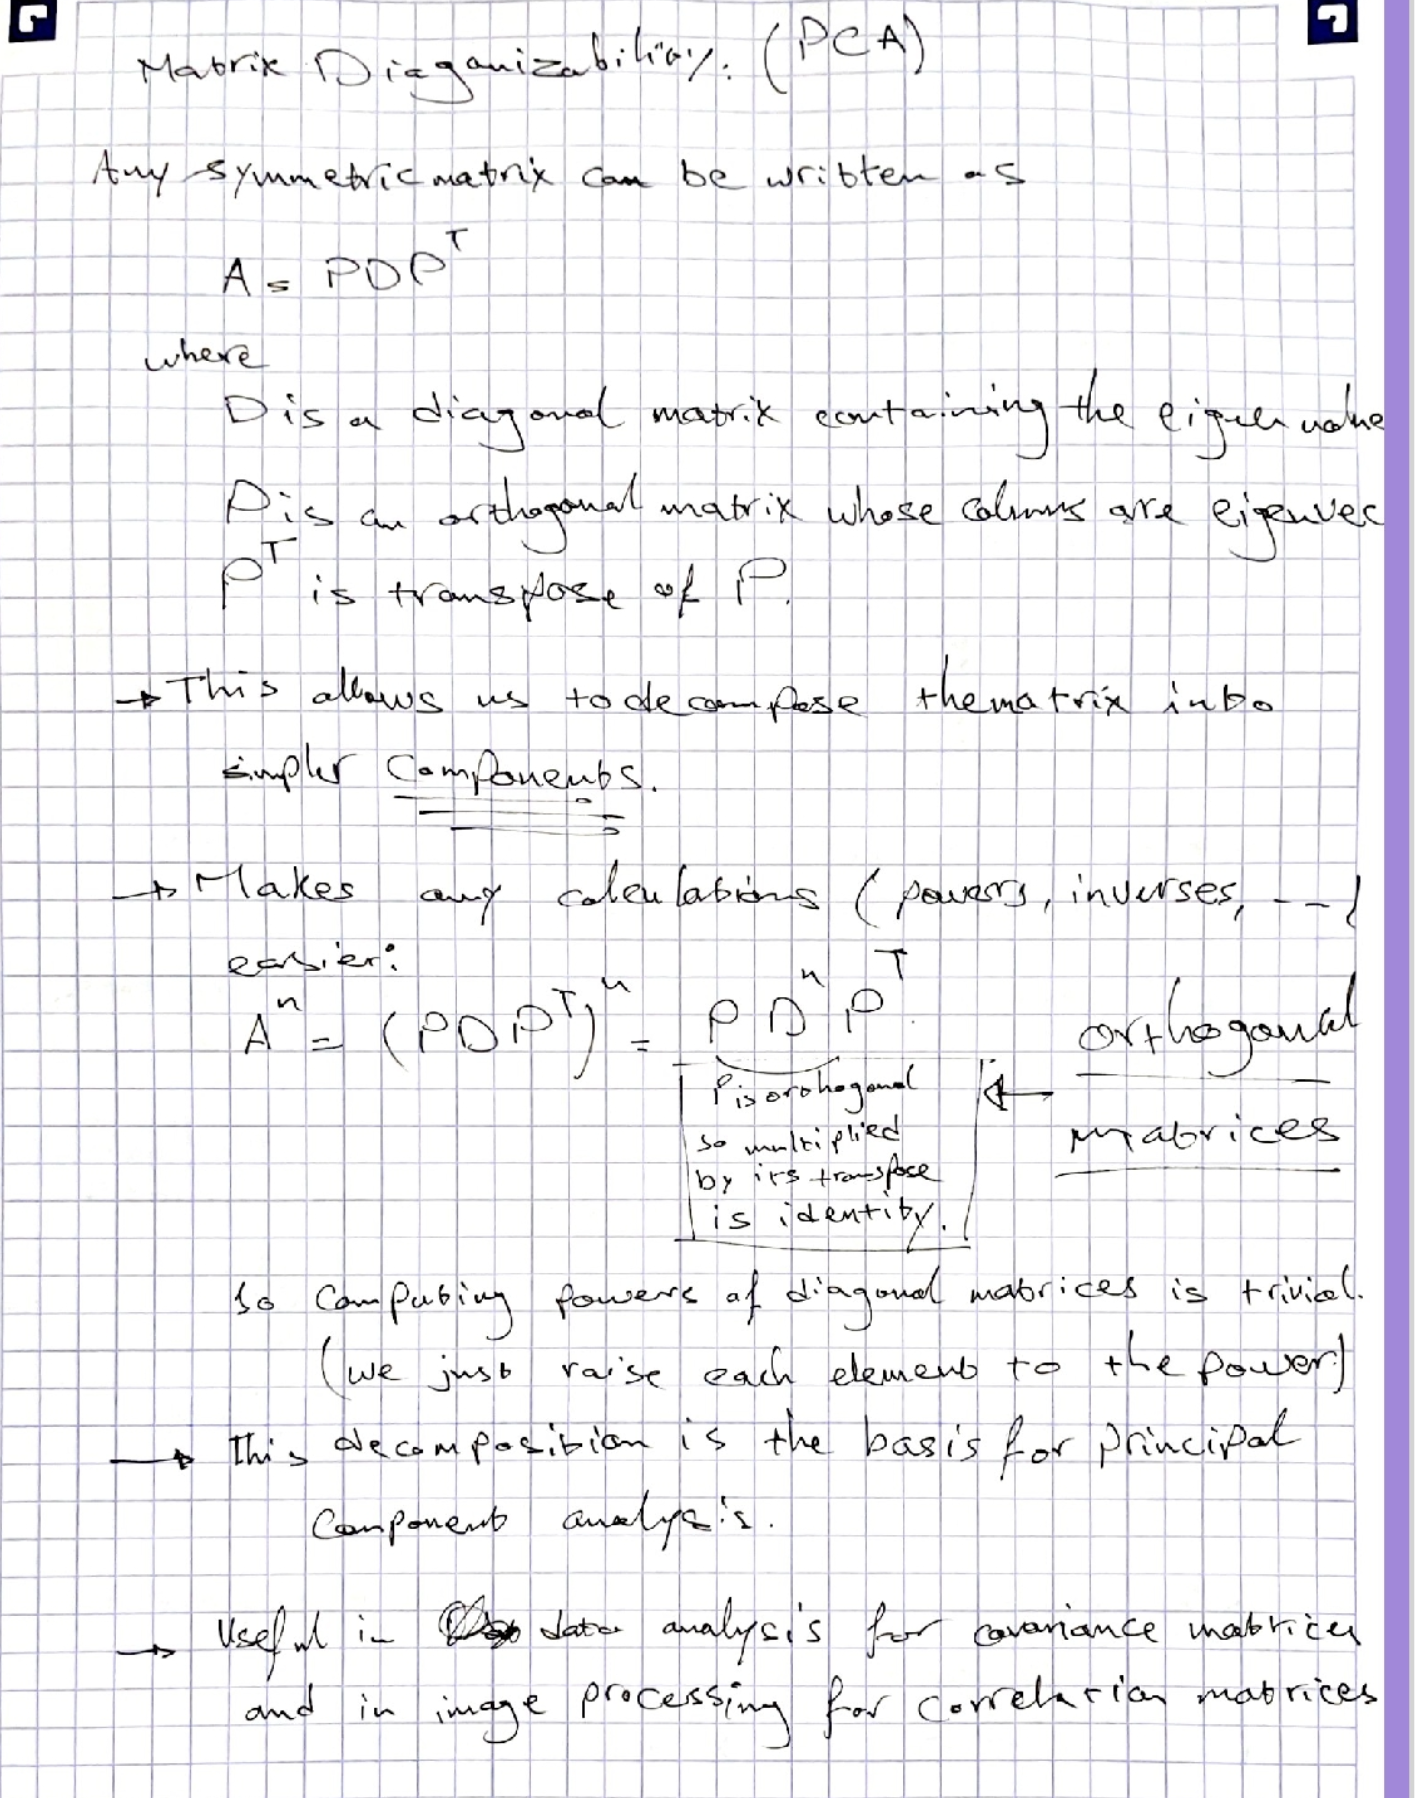 Matrix Diaganizability: (PCA)
Any symmetric matrix can be written as
A = PDP^T
where
D is a diagonal matrix containing the eigen value
P is an orthogonal matrix whose columns are eigenvec
P^T is transpose of P.
→ This allows us to decompose the matrix into
simpler Components.
→ Makes any calculations (powers, inverses, ---)
easier:
A^n = (PDP^T)^n = P D^n P^T.
orthogonal
matrices
P is orthogonal
so multiplied
by its transpose
is identity.
so Computing powers of diagonal matrices is trivial.
(we just raise each element to the power)
→ this decomposition is the basis for principal
Component analysis.
→ Useful in data analysis for covariance matrices
and in image processing for correlation matrices